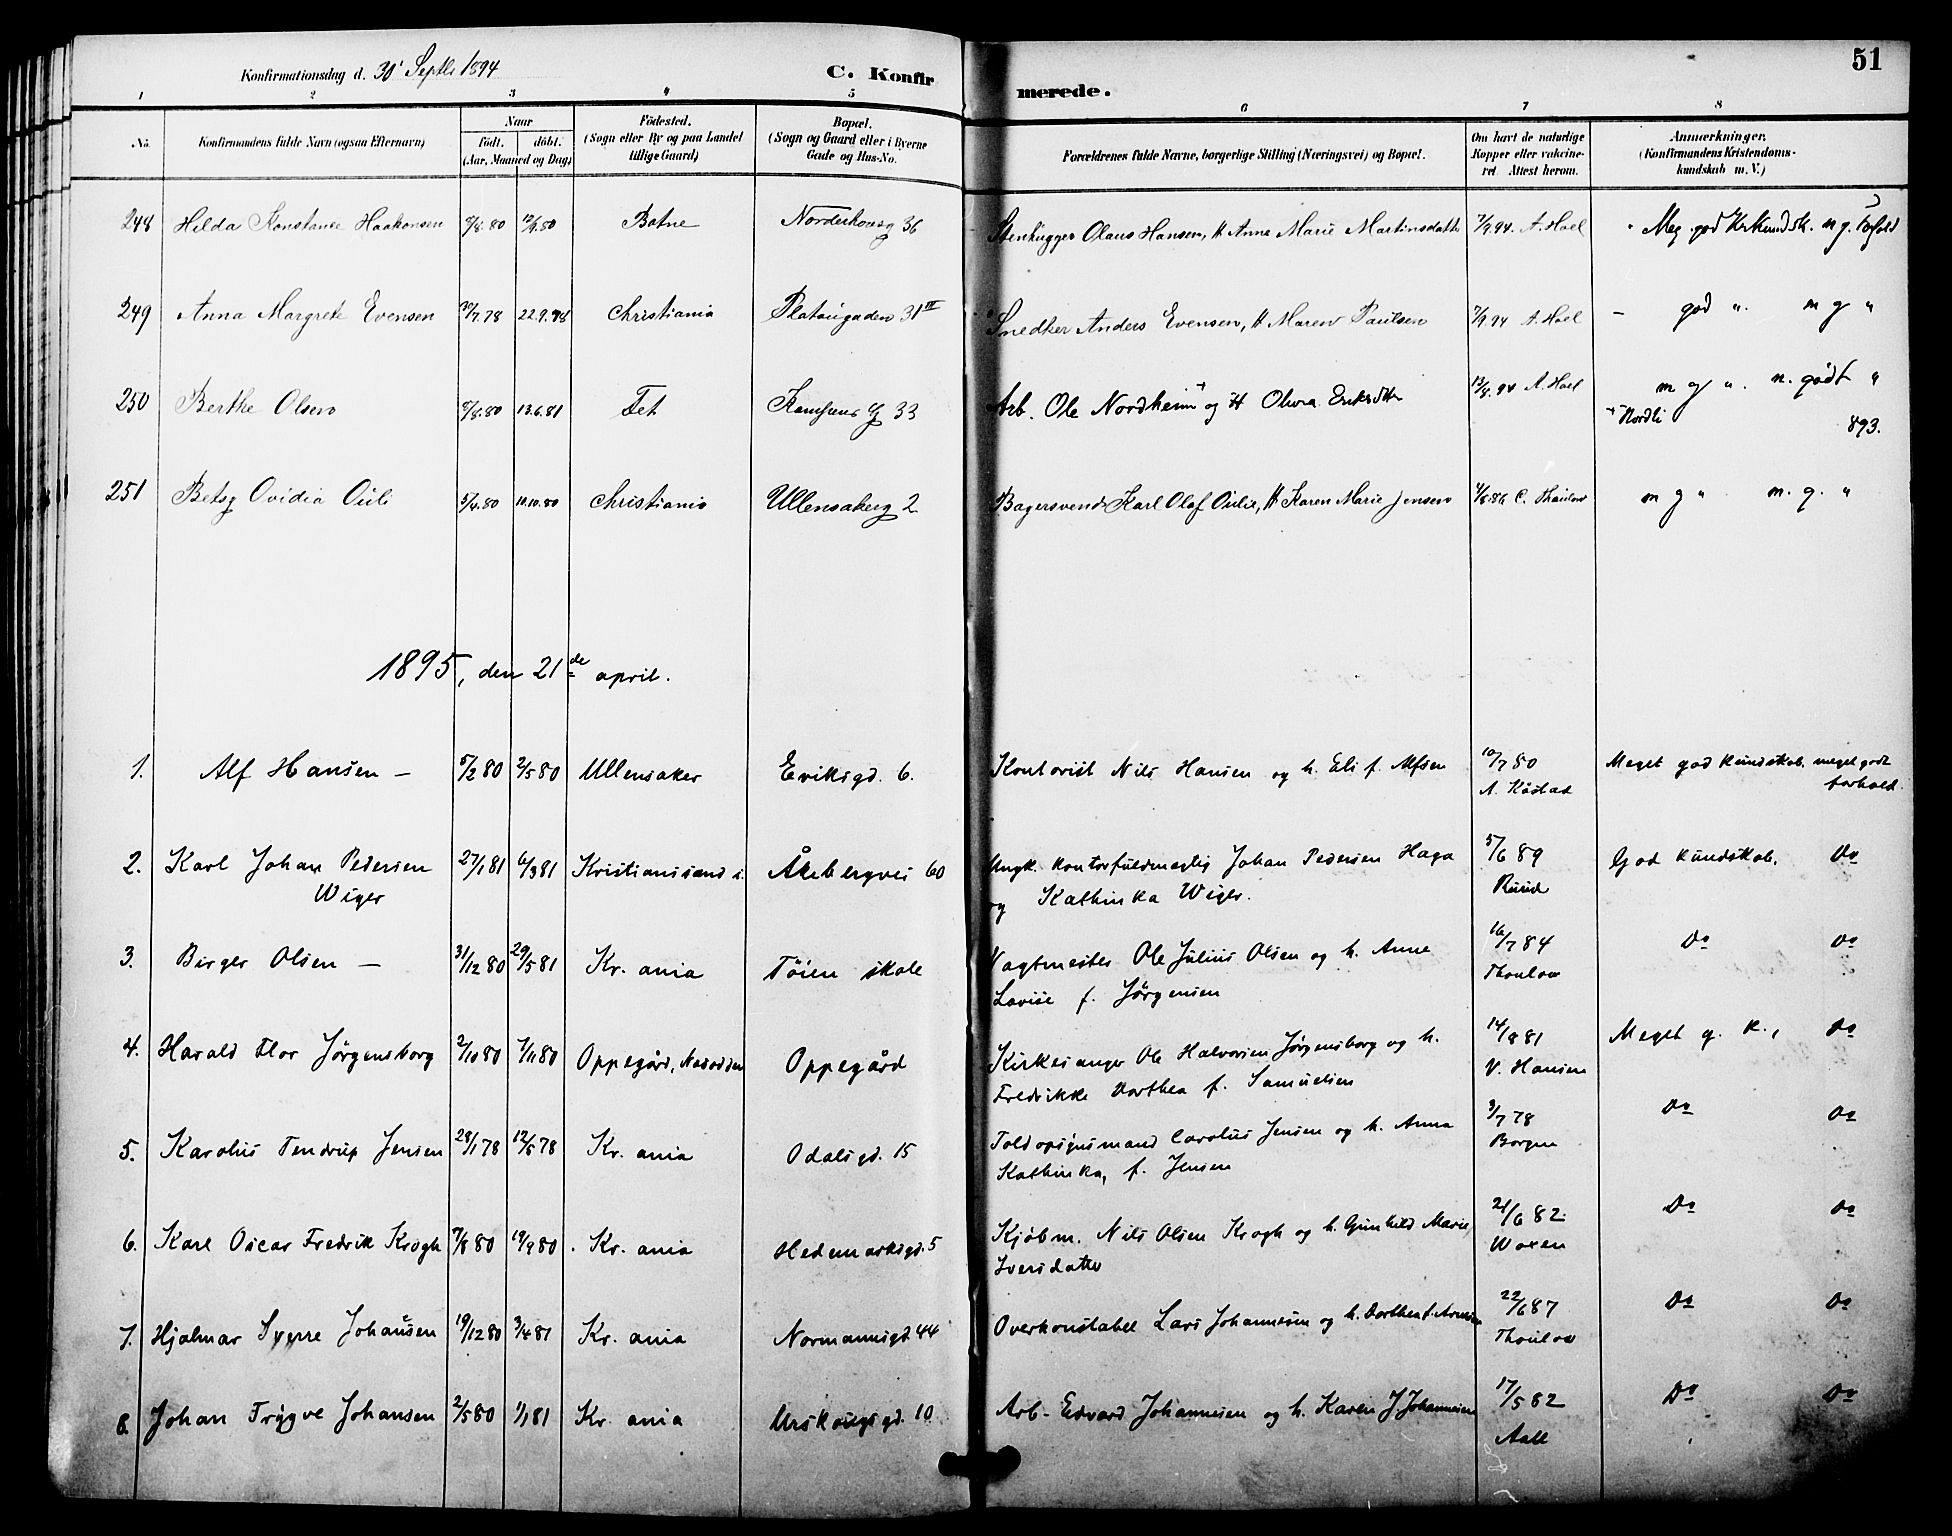 51
Konfirmationsdag d. 30' Septbr 1894
C. Konfirmerede.
1 2 3 4 5 6 7 8
No.
Konfirmandens fulde Navn (ogsaa Efternavn)
Naar
født. døbt.
(Aar, Maaned og Dag)
Fødested.
(Sogn eller By og paa Landet
tillige Gaard)
Bopæl.
(Sogn og Gaard eller i Byerne
Gade og Hus-No.
Forældrenes fulde Navne, borgerlige Stilling (Næringsvei) og Bopæl.
Om havt de naturlige
Kopper eller vakcine-
ret. Attest herom.
Anmærkninger.
(Konfirmandens Kristendoms-
kundskab m. V.)
248 Hilda Konstance Haakonsen 9/8.80 12/9.80 Botne Norderhovsg 36 Stenhugger Olaus Hansen, H Anne Marie Martinsdatter 7/9.94 A. Hoel Meg. god Kr.Kundsk. m g. Forhold
249 Anna Margrete Evensen 30/7.78 22.9.78 Christiania Platougaden 31 III Snedker Anders Evensen, H Maren Paulsen 7/9.94 A. Hoel - god " m g "
250 Berthe Olsen 8/8.80 13.6.81 Fet Jensens g 33 Arb. Ole Nordheim + og H Olivia Eriksdtr 13/8.94 A. Hoel m g " n. godt "
+ Nordli 893.
251 Betsy Ovidia Ouli 5/4.80 10.10.80 Christiania Ullensakerg 2 Bagersvend Karl Olaf Oulie, H Karen Marie Jensen 4/8.86 C. Thaulow m g " m. g. "
1895, den 21de april.
1. Alf Hansen - 5/2 80 2/5 80 Ullensaker Eviksgd. 6. Kontorist Nils Hansen og h. Eli f. Alfsen 10/7 80 Meget god kundskab, meget godt
A. Kóstad forhold.
2. Karl Johan Pedersen 27/1 81 6/3 81 Kristianssand s. Åkebergvei 60 Ungk. kontorfuldmægtig Johan Pedersen Haga 5/6 89 God kundskab, Do
Wiger og Kathinka Wiger. Ruud
3. Birger Olsen - 31/12 80 29/5 81 Kr. ania Tøien skole Vagtmester Ole Julius Olsen og h. Anne 16/7 84 Do Do
Lovise f. Jørgensen Thoulow
4. Harald Flor Jørgensborg 2/10 80 7/11 80 Oppegård, Nesodden Oppegård Kirkesanger Ole Halvorsen Jørgensborg og h. 14/8 81 Meget g. k., Do
Fredrikke Dorthea f. Samuelsen V. Hansen
5. Karolus Tendrup Jensen 28/1 78 12/5 78 Kr. ania Odalsgd. 15 Toldopsynsmand Carolus Jensen og h. Anna 3/7 78 Do Do
Kathinka, f. Jensen Borgen
6. Karl Oscar Fredrik Krogh 7/8 80 19/9 80 Kr. ania Hedemarksgd. 5 Kjøbm. Nils Olsen Krogh og h. Gunhild Marie 21/6 82 Do Do
Iversdatter Woxen
7. Hjalmar Sygne Johansen 19/12 80 3/4 81 Kr. ania Normannsgd 44 Overkonstabel Lars Johannesen og h. Dorthea f. Arnesen 22/6 87 Do Do
Thoulow
8. Johan Trygve Johansen 2/5 80 1/1 81 Kr. ania Urskougsgd. 10 Arb. Edvard Johannesen og h. Karen J. Johannesen 17/5 82 Do Do
Aall